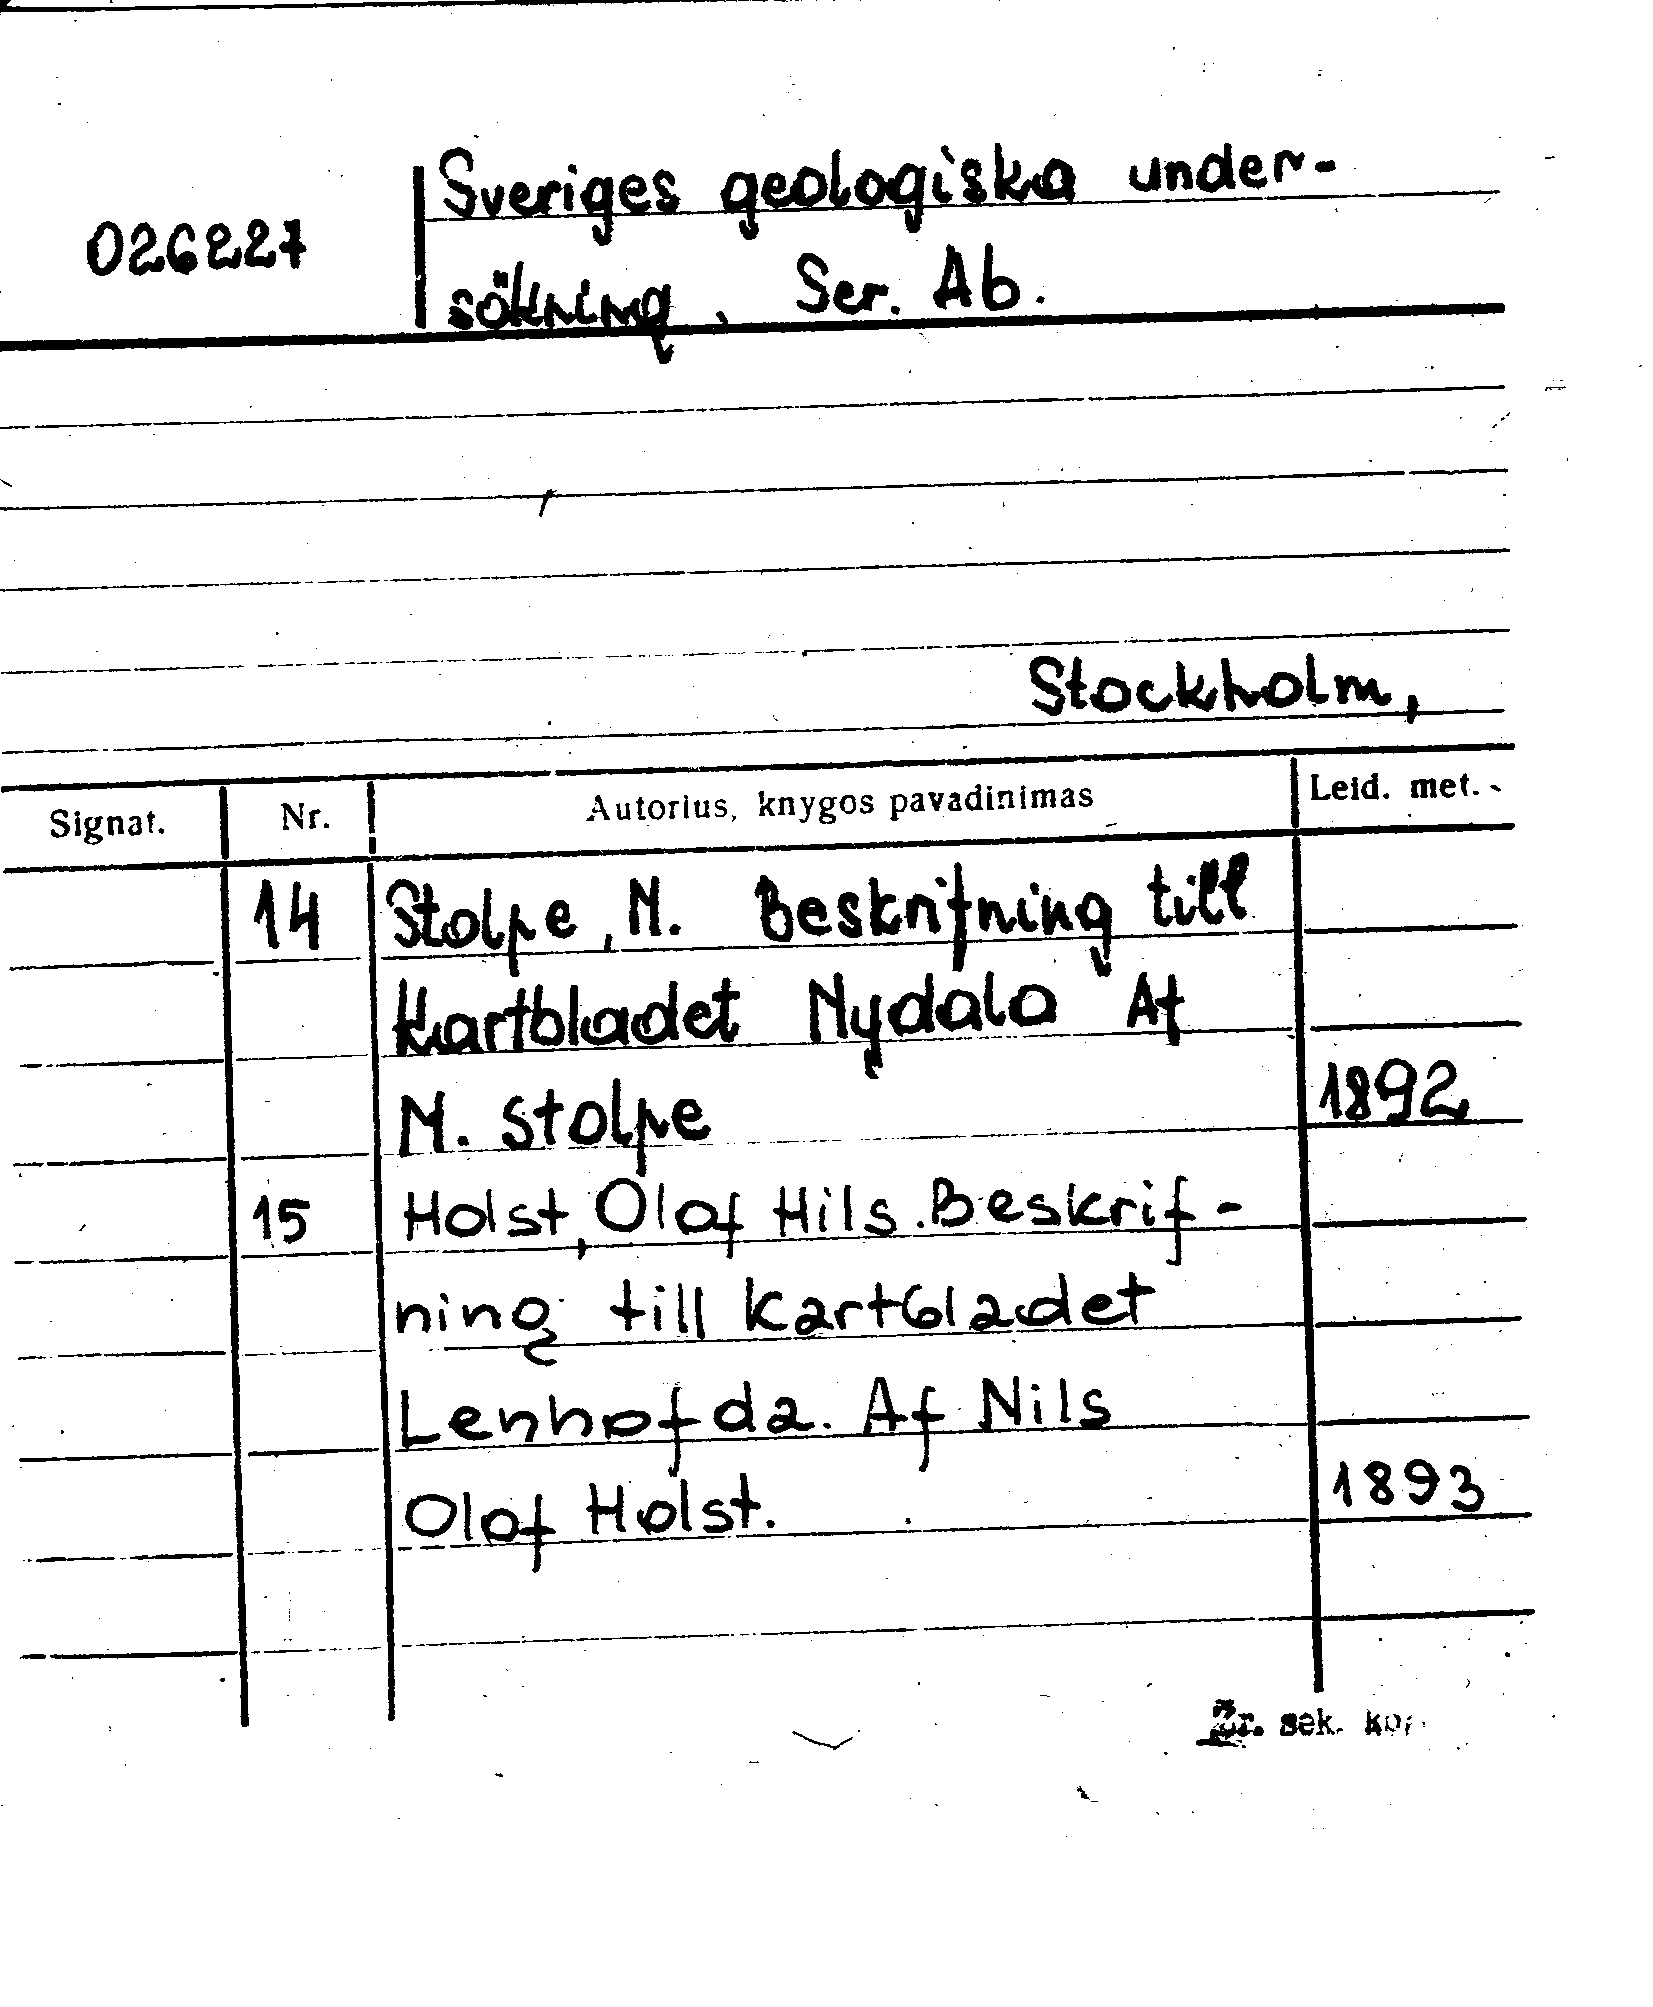 Sveriges geologiska under-
026227
sökning. Ser. Ab.
Stockholm,
Signat. Nr. Autorius, knygos pavadinimas Leid. met.
14 Stolpe, M. Beskrifning till
Kartbladet Nydala Af
M. Stolpe 1892
15 Holst, Olof Hils. Beskrif-
ning till kartbladet
Lenhofda. Af Nils
Olof Holst. 1893
Žr. sek. kor